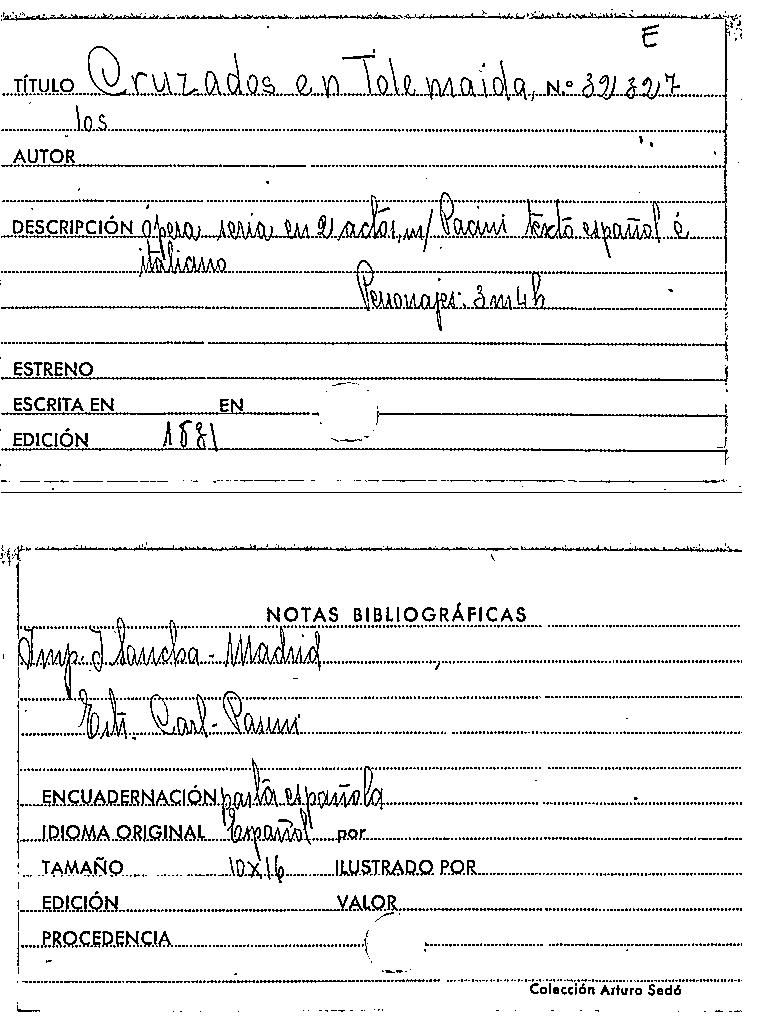 E
TÍTULO Cruzados en Tolemaida, N.º 32327
los
AUTOR
DESCRIPCIÓN ópera seria en 2 actos, m/ Pacini texto español é
italiano
Personajes: 3m4h
ESTRENO
ESCRITA EN EN
EDICIÓN 1831
NOTAS BIBLIOGRÁFICAS
Imp. I Sancha - Madrid
Carl - Pasini
ENCUADERNACIÓN pasta española
IDIOMA ORIGINAL Español por
TAMAÑO 10x16 ILUSTRADO POR
EDICIÓN VALOR
PROCEDENCIA
Colección Arturo Sedó